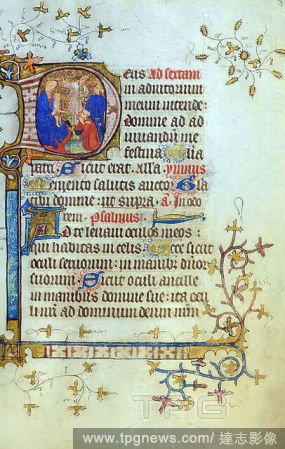 Deus Ad sextam
in adiutorium
meum intende:
domine ad ad
iuuandū me
festina Glīa
patri. Sicut erat. alla. ymnus
Memento salutis auctor Gla
tibi domine: ut supra. a. In odo
rem. psalmus.
Ad te leuaui oculos meos:
qui habitas in celis. Ecce sicut
oculi seruorum: in manibz dñor
suorum Sicut oculi ancille
in manibus domine sue: ita ocu
li nr̄i ad dominum deum nr̄m
TPG
www.tpgnews.com/ 達志影像